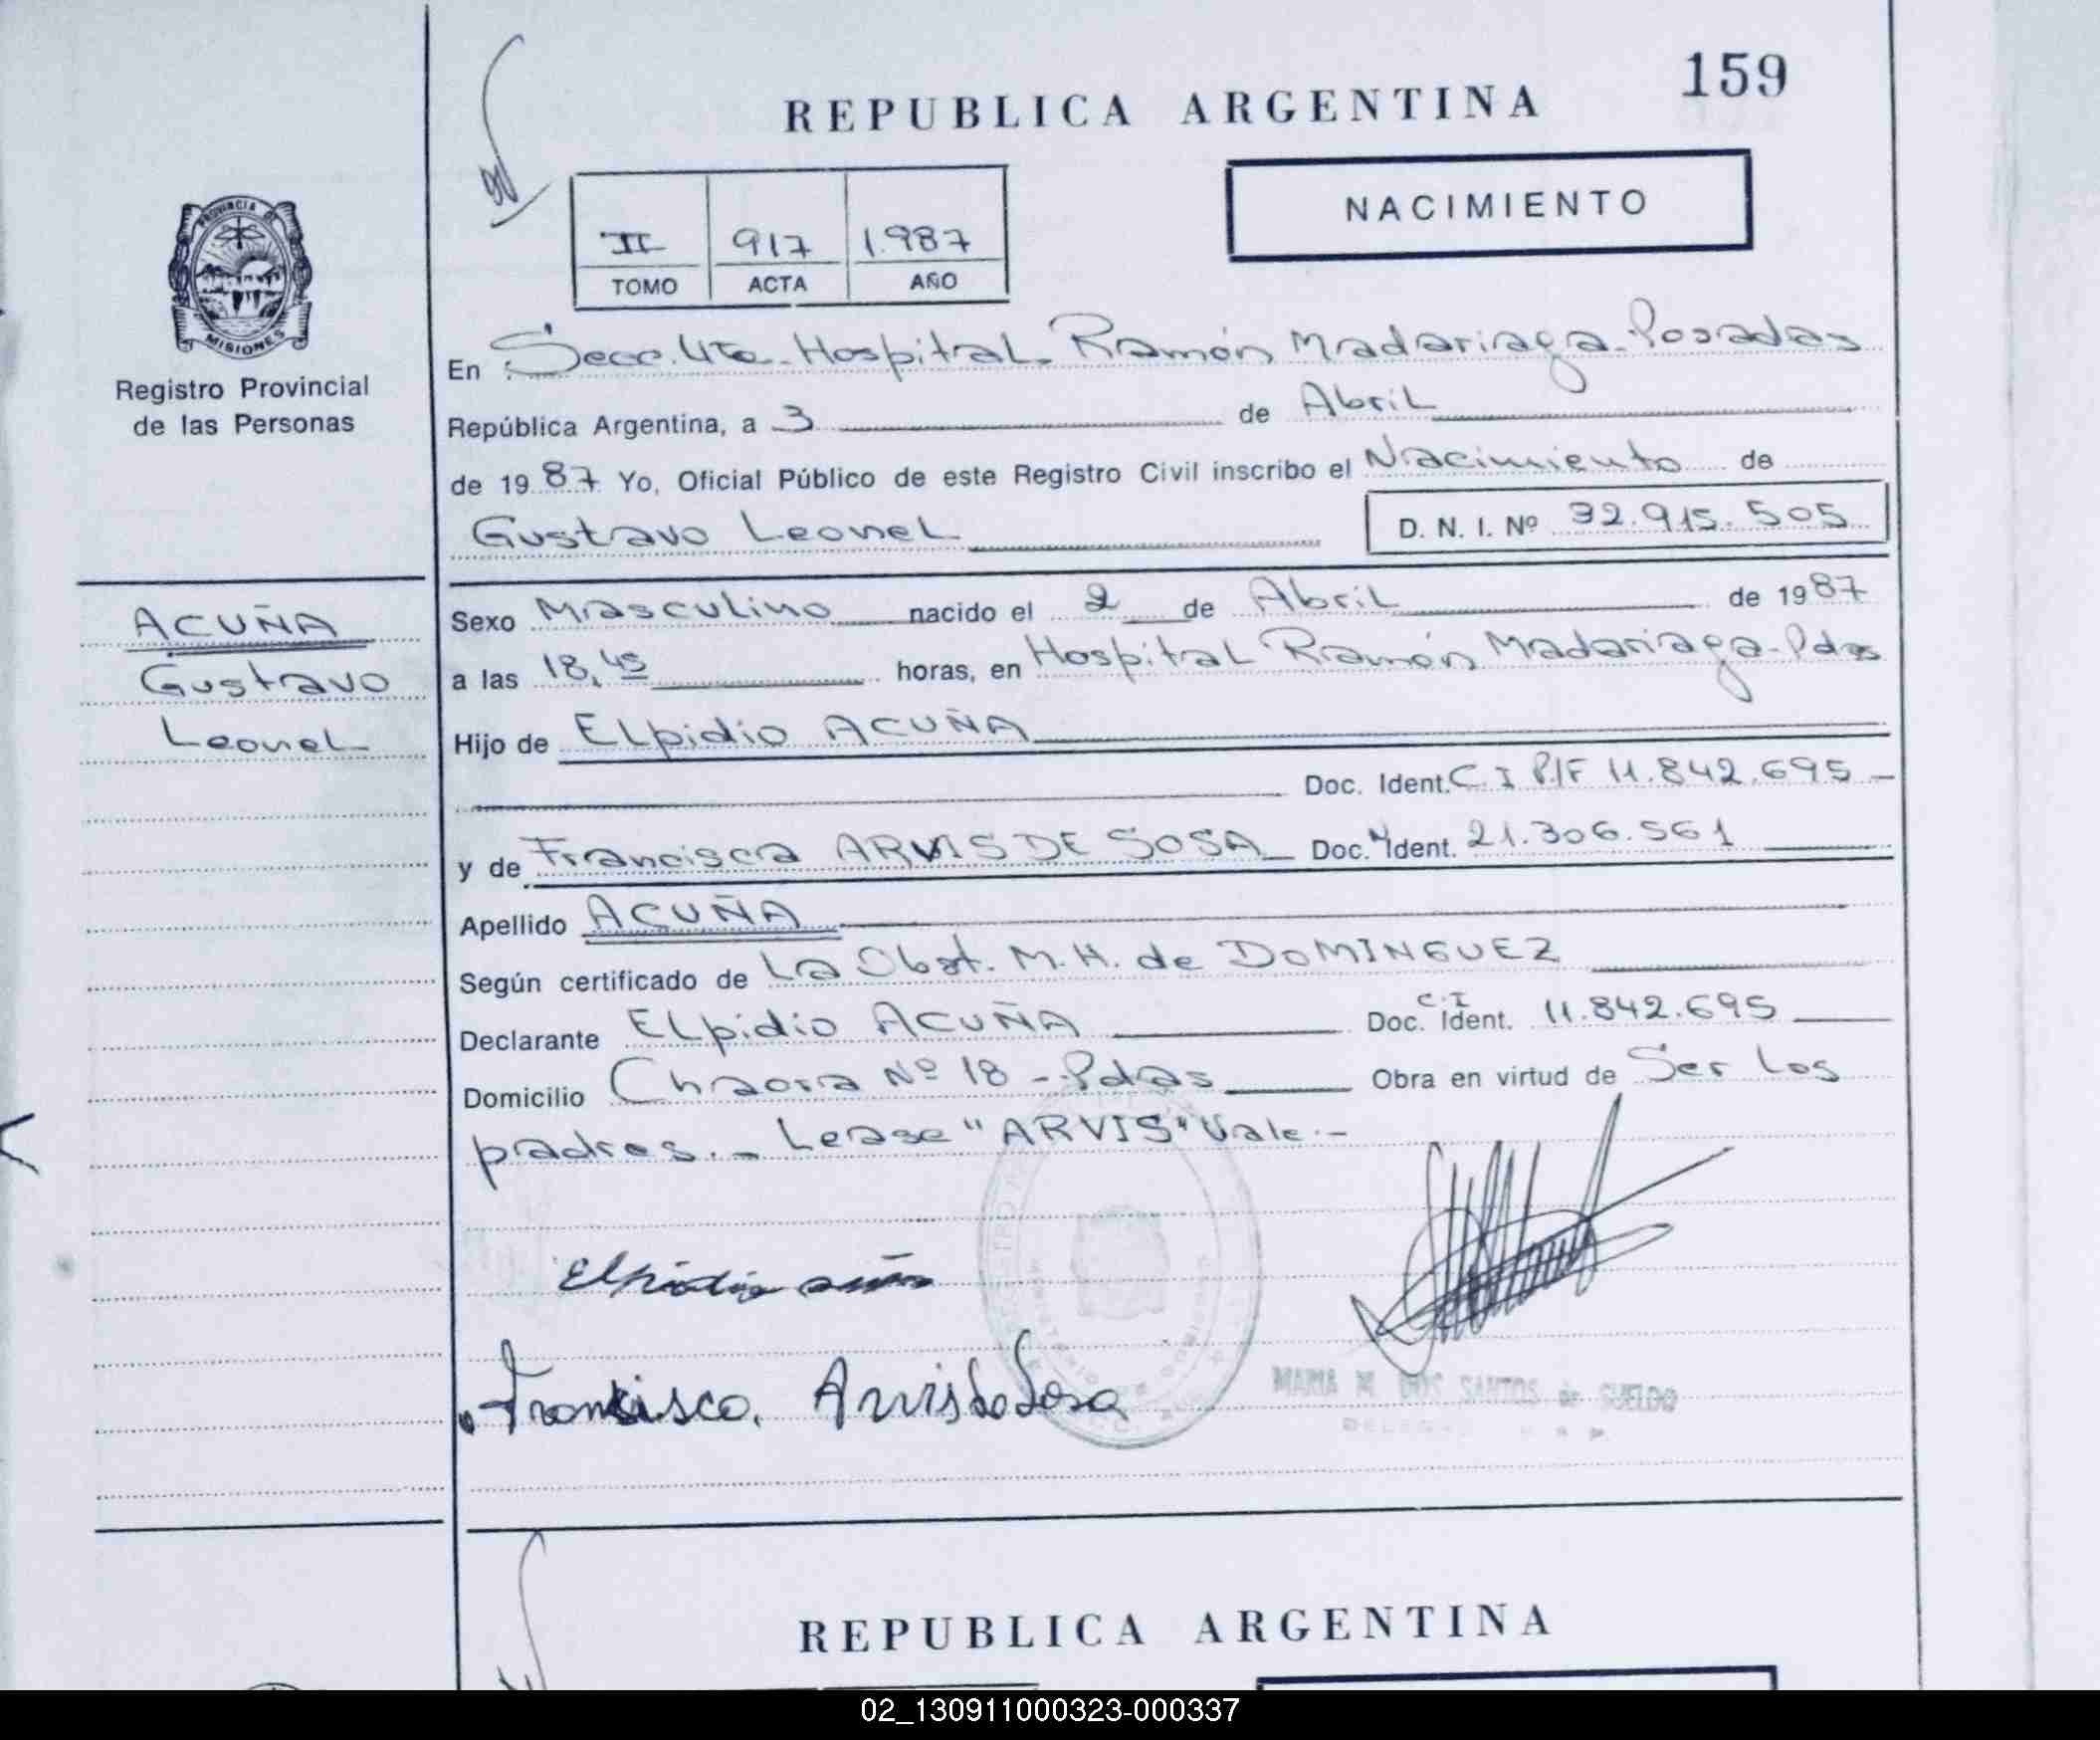 159
REPUBLICA ARGENTINA
NACIMIENTO
II 917 1.987
TOMO ACTA AÑO
PROVINCIA DE
MISIONES
Registro Provincial
de las Personas
En Secc. 4ta. Hospital Ramón Madariaga - Posadas
República Argentina, a 3 de Abril
de 19 87 Yo, Oficial Público de este Registro Civil inscribo el Nacimiento de
Gustavo Leonel D. N. I. Nº 32.915.505
ACUÑA
Gustavo
Leonel
Sexo Masculino nacido el 2 de Abril de 19 87
a las 18,45 horas, en Hospital Ramón Madariaga - Pdas
Hijo de Elpidio ACUÑA
Doc. Ident. C. I P/F 11.842.695 -
y de Francisca ARVIS DE SOSA Doc. Ident. 21.306.561
Apellido ACUÑA
Según certificado de La Obst. M. H. de DOMINGUEZ
Declarante Elpidio ACUÑA Doc. Ident. C.I 11.842.695
Domicilio Chacra Nº 18 - Pdas Obra en virtud de Ser los
padres. - Lease "ARVIS" Vale. -
Elpidio
Francisca Arvis de Sosa
MARIA M. DOS SANTOS de SUELDO
REPUBLICA ARGENTINA
02_130911000323-000337